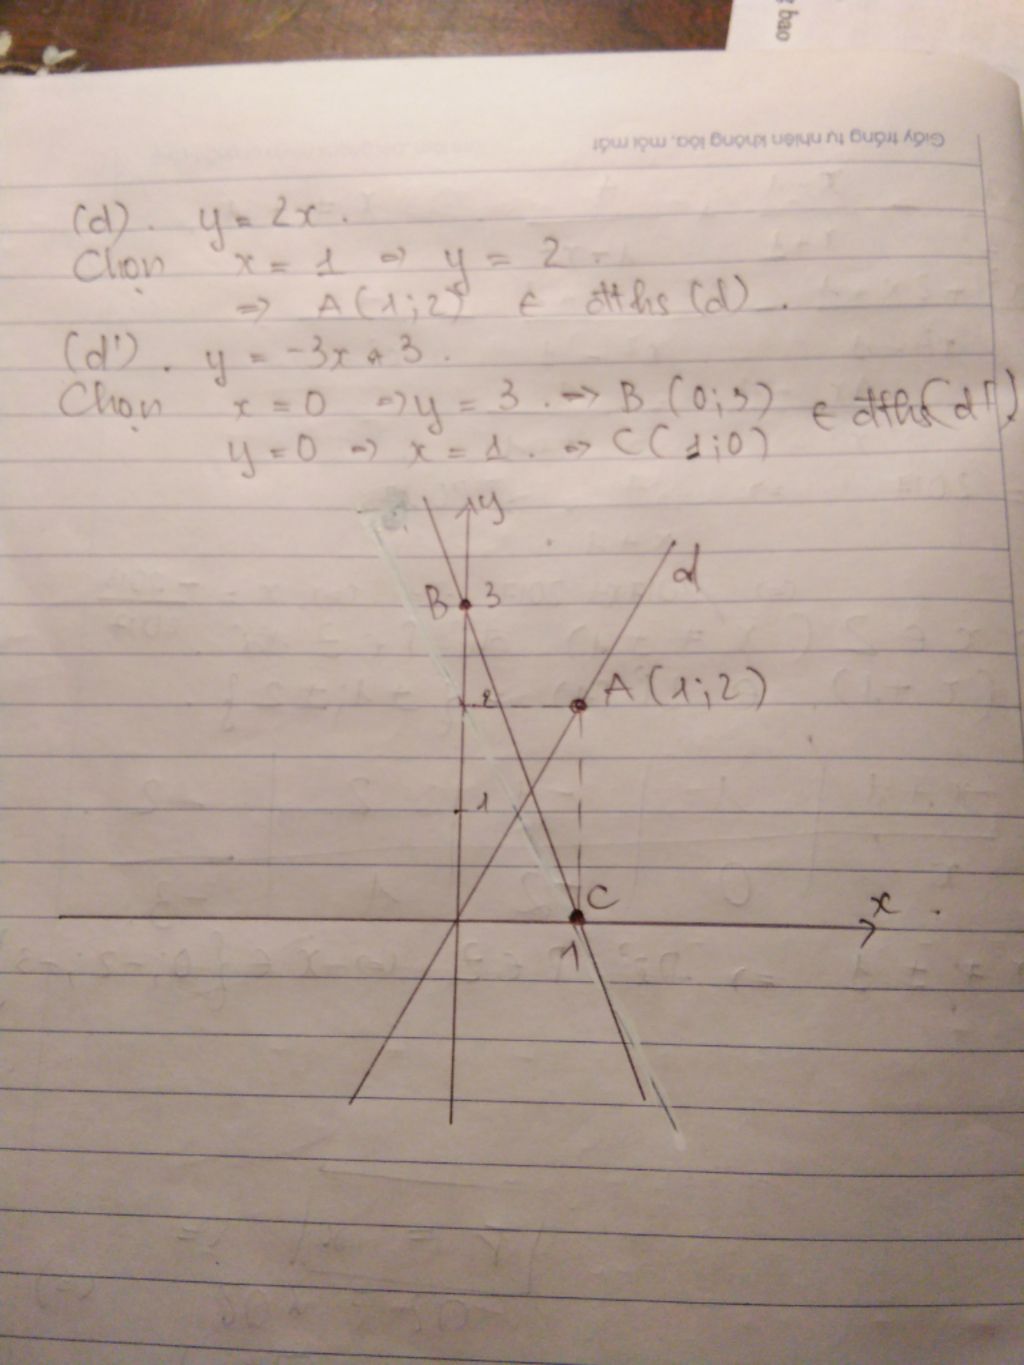 bao
Giấy trắng tự nhiên không lóa, mỏi mắt
(d). y = 2x.
Chọn x = 1 => y = 2.
=> A(1;2) ∈ đths (d).
(d'). y = -3x + 3.
Chọn x = 0 => y = 3. => B (0;3) ∈ đths (d')
y = 0 => x = 1. => C(1;0)
y
d
B 3
A(1;2)
2
1
C
x
1